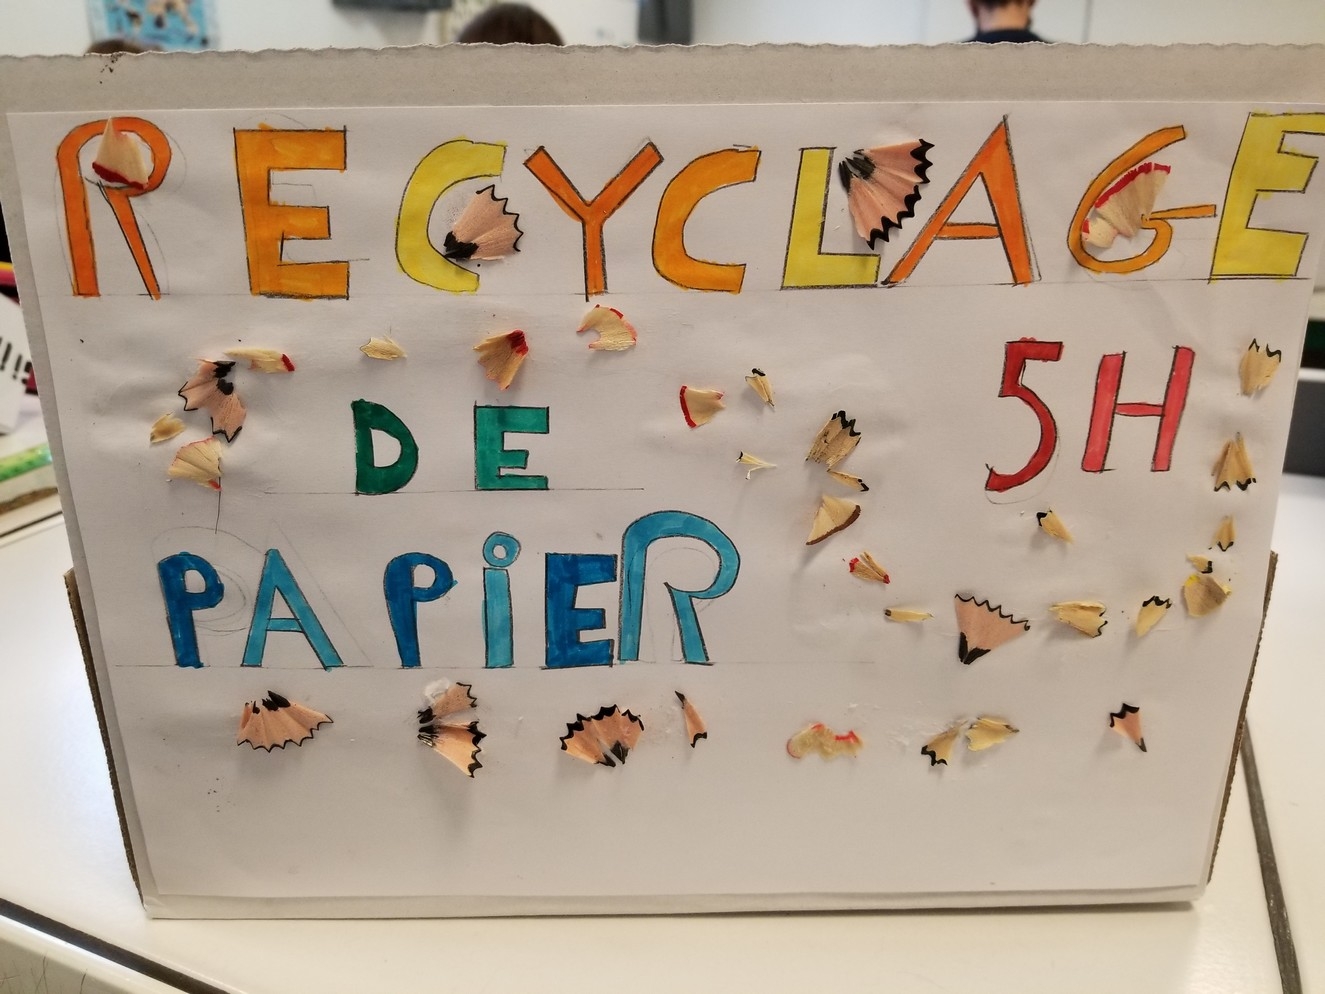 RECYCLAGE
DE
5H
PAPiER